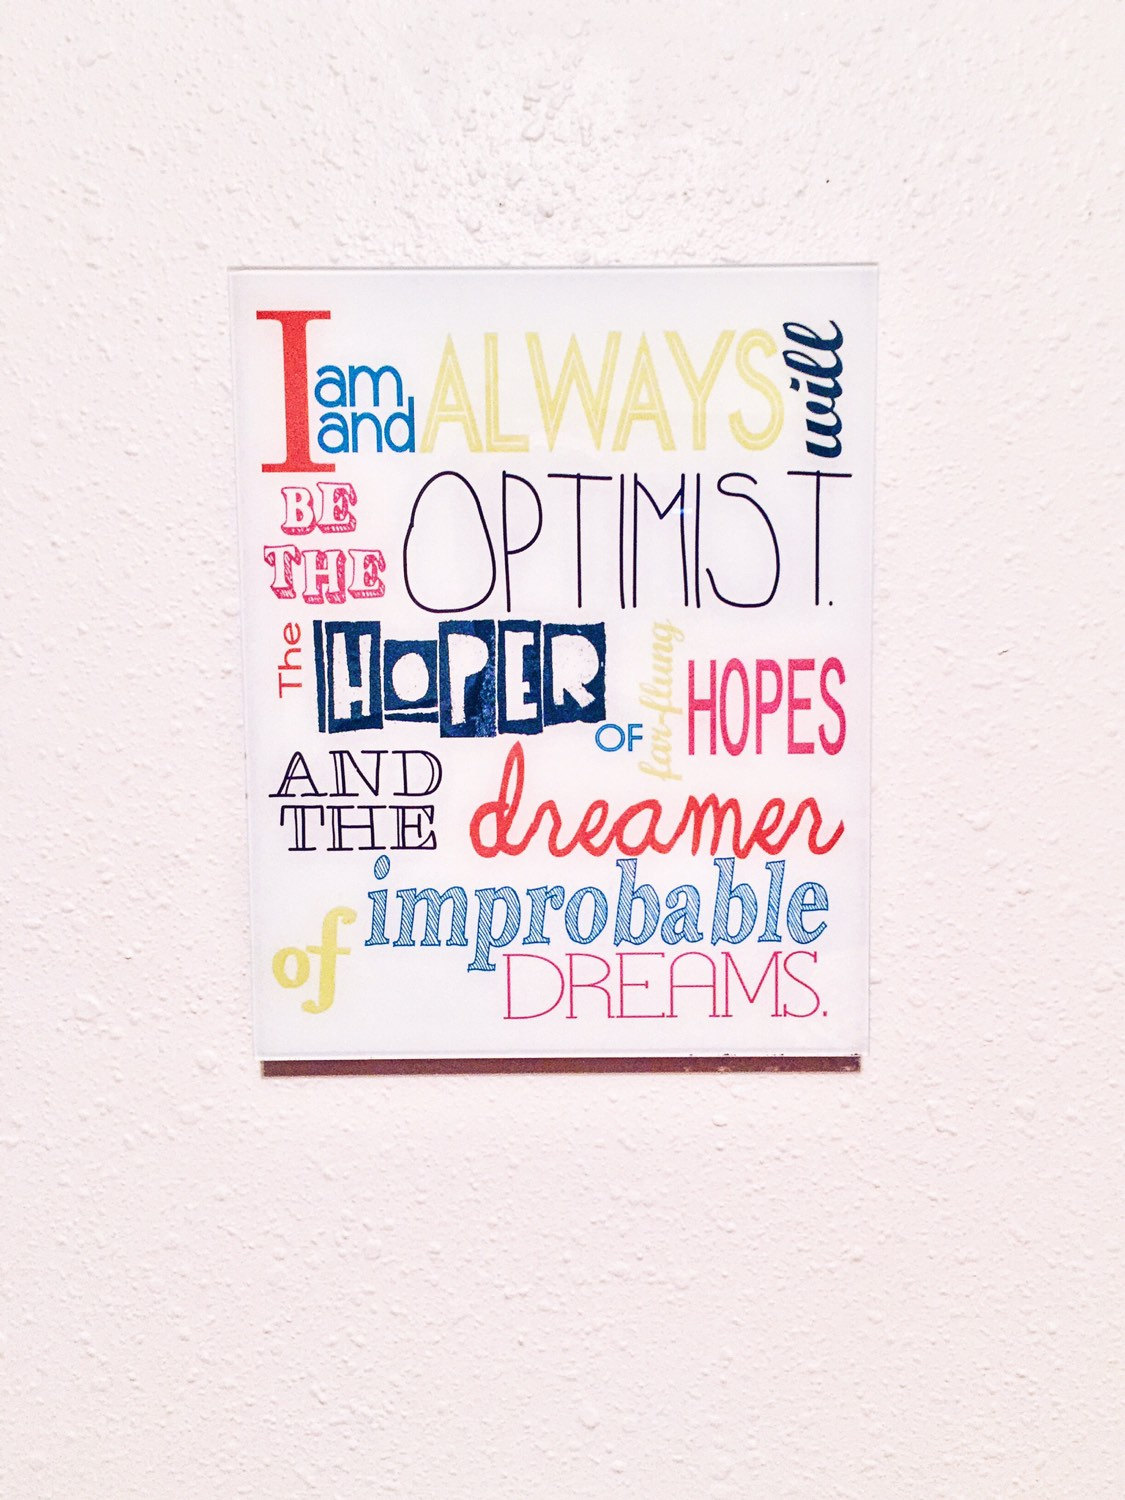 I am and ALWAYS will
BE THE OPTIMIST.
The HOPER OF far-flung HOPES
AND THE dreamer
of improbable
DREAMS.